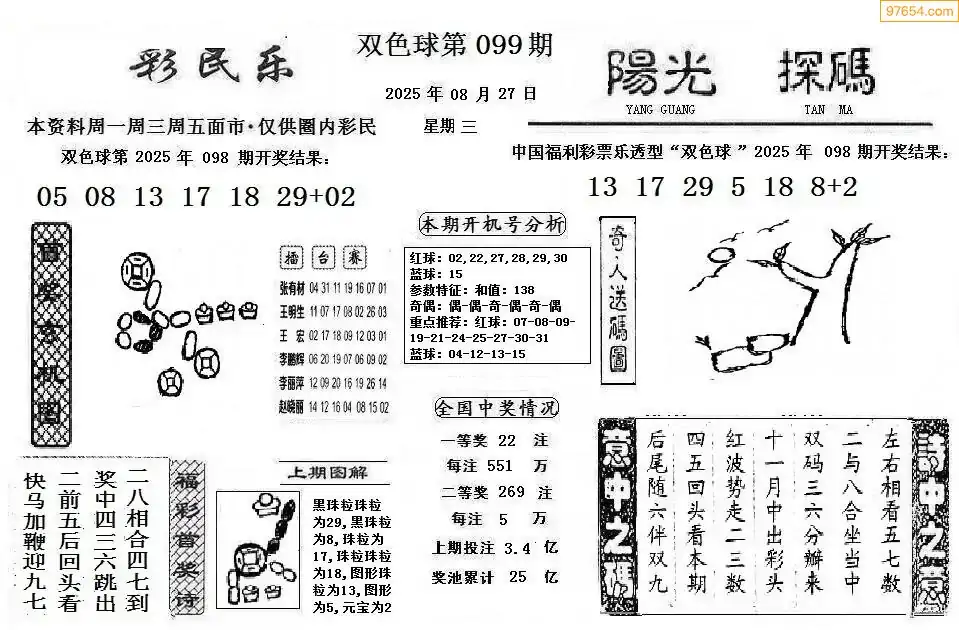 97654.com
彩民乐
双色球第 099 期
2025 年 08 月 27 日
星期 三
陽光 探碼
YANG GUANG TAN MA
本资料周一周三周五面市·仅供圈内彩民
双色球第 2025 年 098 期开奖结果:
05 08 13 17 18 29+02
中国福利彩票乐透型“双色球 ”2025 年 098 期开奖结果:
13 17 29 5 18 8+2
擂 台 赛
张有材 04 31 11 19 16 07 01
王明生 11 07 17 08 02 26 03
王 宏 02 17 18 09 12 03 01
李鹏辉 06 20 19 07 06 09 02
李丽萍 12 09 20 16 19 26 14
赵晓丽 14 12 16 04 08 15 02
本期开机号分析
红球: 02,22,27,28,29,30
蓝球: 15
参数特征: 和值: 138
奇偶: 偶-偶-奇-偶-奇-偶
重点推荐: 红球: 07-08-09-
19-21-24-25-27-30-31
蓝球: 04-12-13-15
奇人送碼圖
全国中奖情况
一等奖 22 注
每注 551 万
二等奖 269 注
每注 5 万
上期投注 3.4 亿
奖池累计 25 亿
福彩首奖诗
二八相合四七到
奖中四三六跳出
二前五后回头看
快马加鞭迎九七
上期图解
黑珠粒珠粒
为29,黑珠粒
为8,珠粒为
17,珠粒珠粒
为18,图形珠
粒为13,图形
为5,元宝为2
左右相看五七数
二与八合坐当中
双码三六分瓣来
十一月中出彩头
红波势走二三数
四五回头看本期
后尾随六伴双九